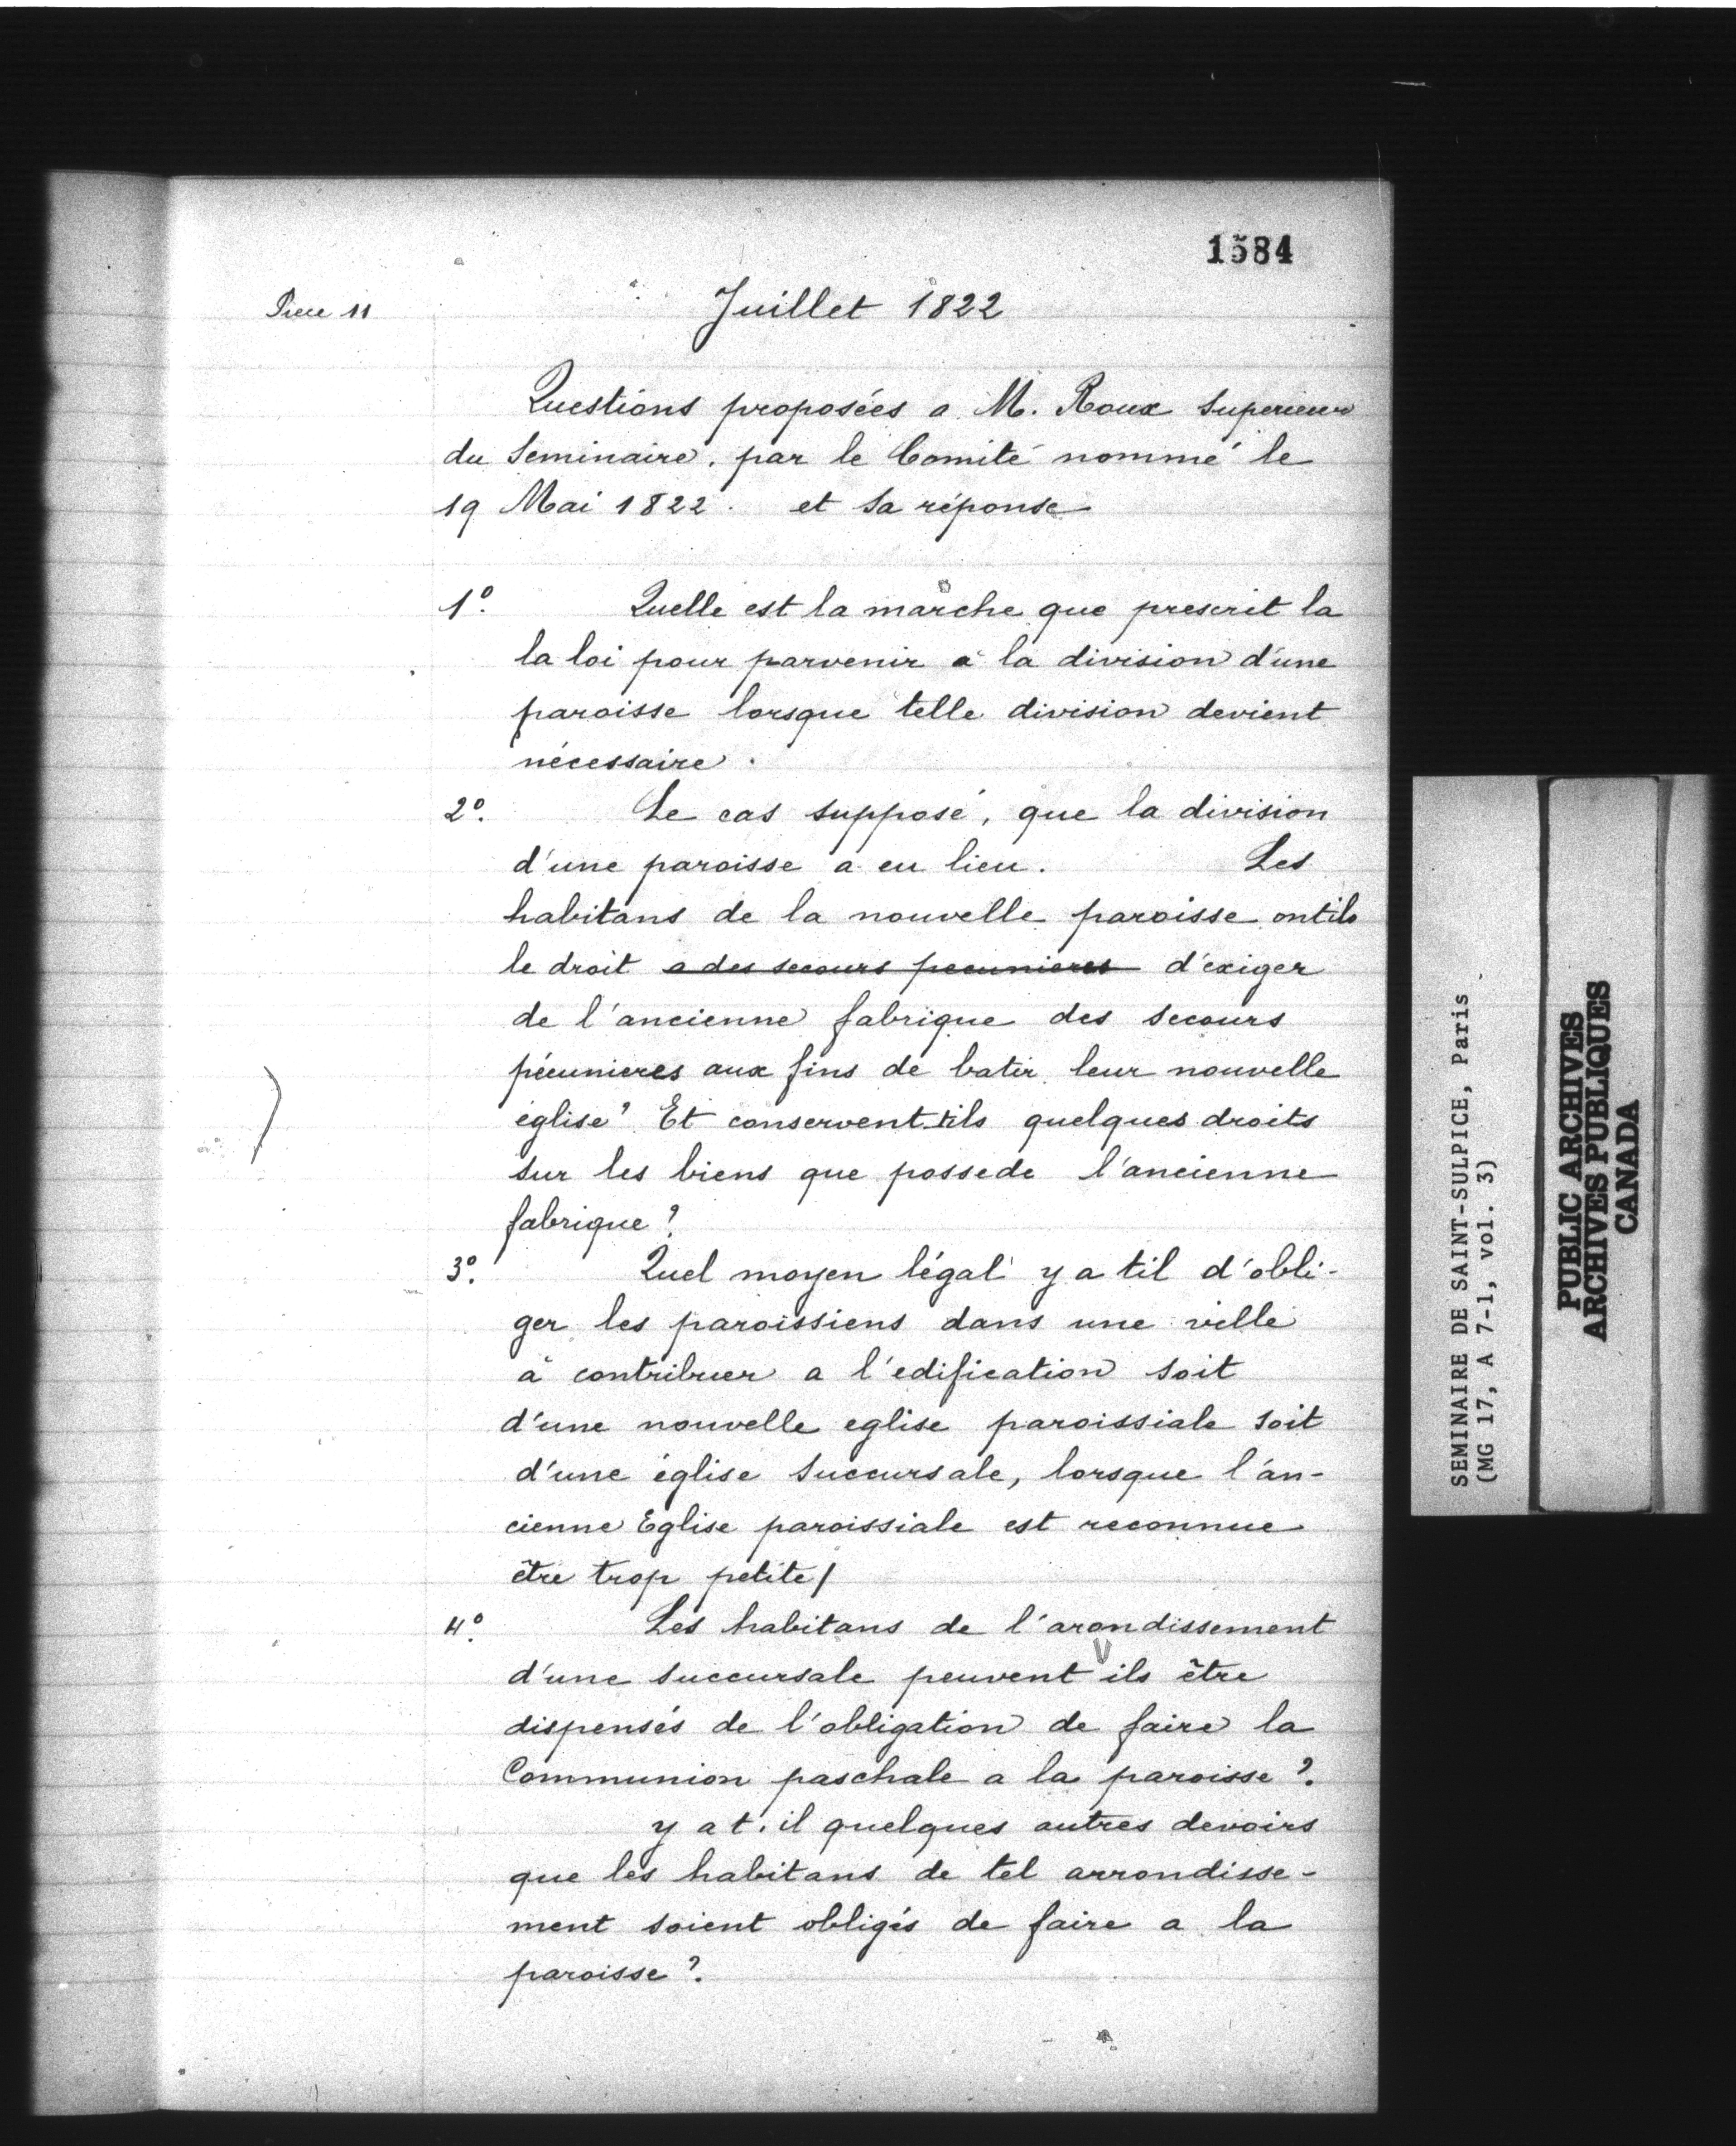 1584
Piece 11
Juillet 1822
Questions proposées a M. Roux Superieur
du Seminaire. par le Comité nommé le
19 Mai 1822. et Sa réponse
1º. Quelle est la marche que prescrit la
la loi pour parvenir à la division d'une
paroisse lorsque telle division devient
nécessaire.
2º. Le cas supposé, que la division
d'une paroisse a eu lieu. Les
habitans de la nouvelle paroisse ontils
le droit a des secours pecunieres d'exiger
de l'ancienne fabrique des secours
pécunieres aux fins de batir leur nouvelle
église? Et conservent-ils quelques droits
sur les biens que possede l'ancienne
fabrique?
3º. Quel moyen légal y a til d'obli-
ger les paroissiens dans une ville
à contribuer a l'edification soit
d'une nouvelle eglise paroissiale soit
d'une église succursale, lorsque l'an-
cienne Eglise paroissiale est reconnue
être trop petite/
4º. Les habitans de l'arondissement
d'une succursale peuvent ils être
dispensés de l'obligation de faire la
Communion paschale a la paroisse?.
y a t. il quelques autres devoirs
que les habitans de tel arrondisse-
ment soient obligés de faire a la
paroisse?.
SEMINAIRE DE SAINT-SULPICE, Paris
(MG 17, A 7-1, vol. 3)
PUBLIC ARCHIVES
ARCHIVES PUBLIQUES
CANADA